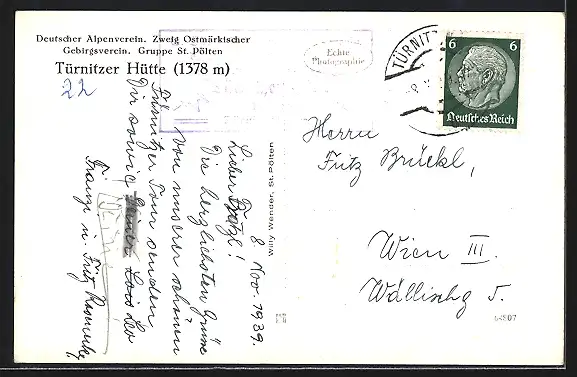 Deutscher Alpenverein. Zweig Ostmärkischer
Gebirgsverein. Gruppe St. Pölten
Türnitzer Hütte (1378 m)
22
Echte
Photographie
TÜRNITZ
6 6
Deutsches Reich
8. Nov. 1939.
Lieber Fritzl!
Die herzlichsten Grüsse
von unserer schönen
Türnitzer Tour senden
Dir sowie Lois Leo
Franzi u. Fritz
Willy Wender, St. Pölten
Herrn
Fritz Brückl,
Wien III.
Wällischg 5.